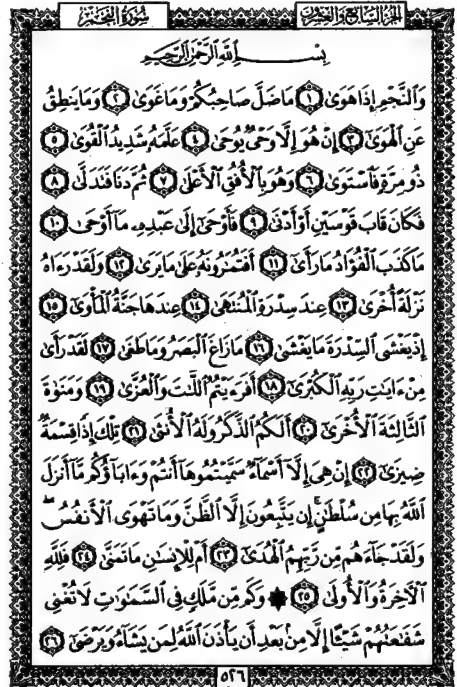 سُورَةُ النَّجْمِ
الجُزْءُ السَّابِعُ وَالعِشْرُونَ
بِسْمِ ٱللَّهِ ٱلرَّحْمَٰنِ ٱلرَّحِيمِ
وَٱلنَّجْمِ إِذَا هَوَىٰ ١ مَا ضَلَّ صَاحِبُكُمْ وَمَا غَوَىٰ ٢ وَمَا يَنطِقُ
عَنِ ٱلْهَوَىٰ ٣ إِنْ هُوَ إِلَّا وَحْىٌ يُوحَىٰ ٤ عَلَّمَهُۥ شَدِيدُ ٱلْقُوَىٰ ٥
ذُو مِرَّةٍ فَٱسْتَوَىٰ ٦ وَهُوَ بِٱلْأُفُقِ ٱلْأَعْلَىٰ ٧ ثُمَّ دَنَا فَتَدَلَّىٰ ٨
فَكَانَ قَابَ قَوْسَيْنِ أَوْ أَدْنَىٰ ٩ فَأَوْحَىٰ إِلَىٰ عَبْدِهِۦ مَآ أَوْحَىٰ ١٠
مَا كَذَبَ ٱلْفُؤَادُ مَا رَأَىٰٓ ١١ أَفَتُمَٰرُونَهُۥ عَلَىٰ مَا يَرَىٰ ١٢ وَلَقَدْ رَءَاهُ
نَزْلَةً أُخْرَىٰ ١٣ عِندَ سِدْرَةِ ٱلْمُنتَهَىٰ ١٤ عِندَهَا جَنَّةُ ٱلْمَأْوَىٰٓ ١٥
إِذْ يَغْشَى ٱلسِّدْرَةَ مَا يَغْشَىٰ ١٦ مَا زَاغَ ٱلْبَصَرُ وَمَا طَغَىٰ ١٧ لَقَدْ رَأَىٰ
مِنْ ءَايَٰتِ رَبِّهِ ٱلْكُبْرَىٰٓ ١٨ أَفَرَءَيْتُمُ ٱللَّٰتَ وَٱلْعُزَّىٰ ١٩ وَمَنَوٰةَ
ٱلثَّالِثَةَ ٱلْأُخْرَىٰٓ ٢٠ أَلَكُمُ ٱلذَّكَرُ وَلَهُ ٱلْأُنثَىٰ ٢١ تِلْكَ إِذًا قِسْمَةٌ
ضِيزَىٰٓ ٢٢ إِنْ هِىَ إِلَّآ أَسْمَآءٌ سَمَّيْتُمُوهَآ أَنتُمْ وَءَابَآؤُكُم مَّآ أَنزَلَ
ٱللَّهُ بِهَا مِن سُلْطَٰنٍ ۚ إِن يَتَّبِعُونَ إِلَّا ٱلظَّنَّ وَمَا تَهْوَى ٱلْأَنفُسُ ۖ
وَلَقَدْ جَآءَهُم مِّن رَّبِّهِمُ ٱلْهُدَىٰٓ ٢٣ أَمْ لِلْإِنسَٰنِ مَا تَمَنَّىٰ ٢٤ فَلِلَّهِ
ٱلْءَاخِرَةُ وَٱلْأُولَىٰ ٢٥ ۞ وَكَم مِّن مَّلَكٍ فِى ٱلسَّمَٰوَٰتِ لَا تُغْنِى
شَفَٰعَتُهُمْ شَيْـًٔا إِلَّا مِنۢ بَعْدِ أَن يَأْذَنَ ٱللَّهُ لِمَن يَشَآءُ وَيَرْضَىٰٓ ٢٦
٥٢٦